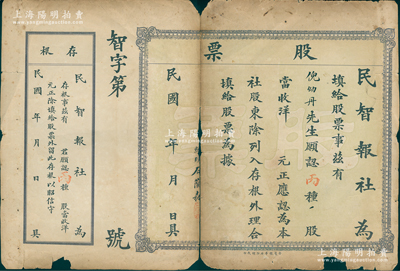 上海陽明拍賣
股票
民智報社為
填給股票事茲有
倪幼丹先生願認丙種 股
當收洋 元正應認為本
社股東除列入存根外理合
填給股票為據
民國 年 月 日具
智字第 號
存根
民智報社為
存根事茲有 君願認丙種 股當收洋
元正除填給股票外留此存根以昭信守
民國 年 月 日具